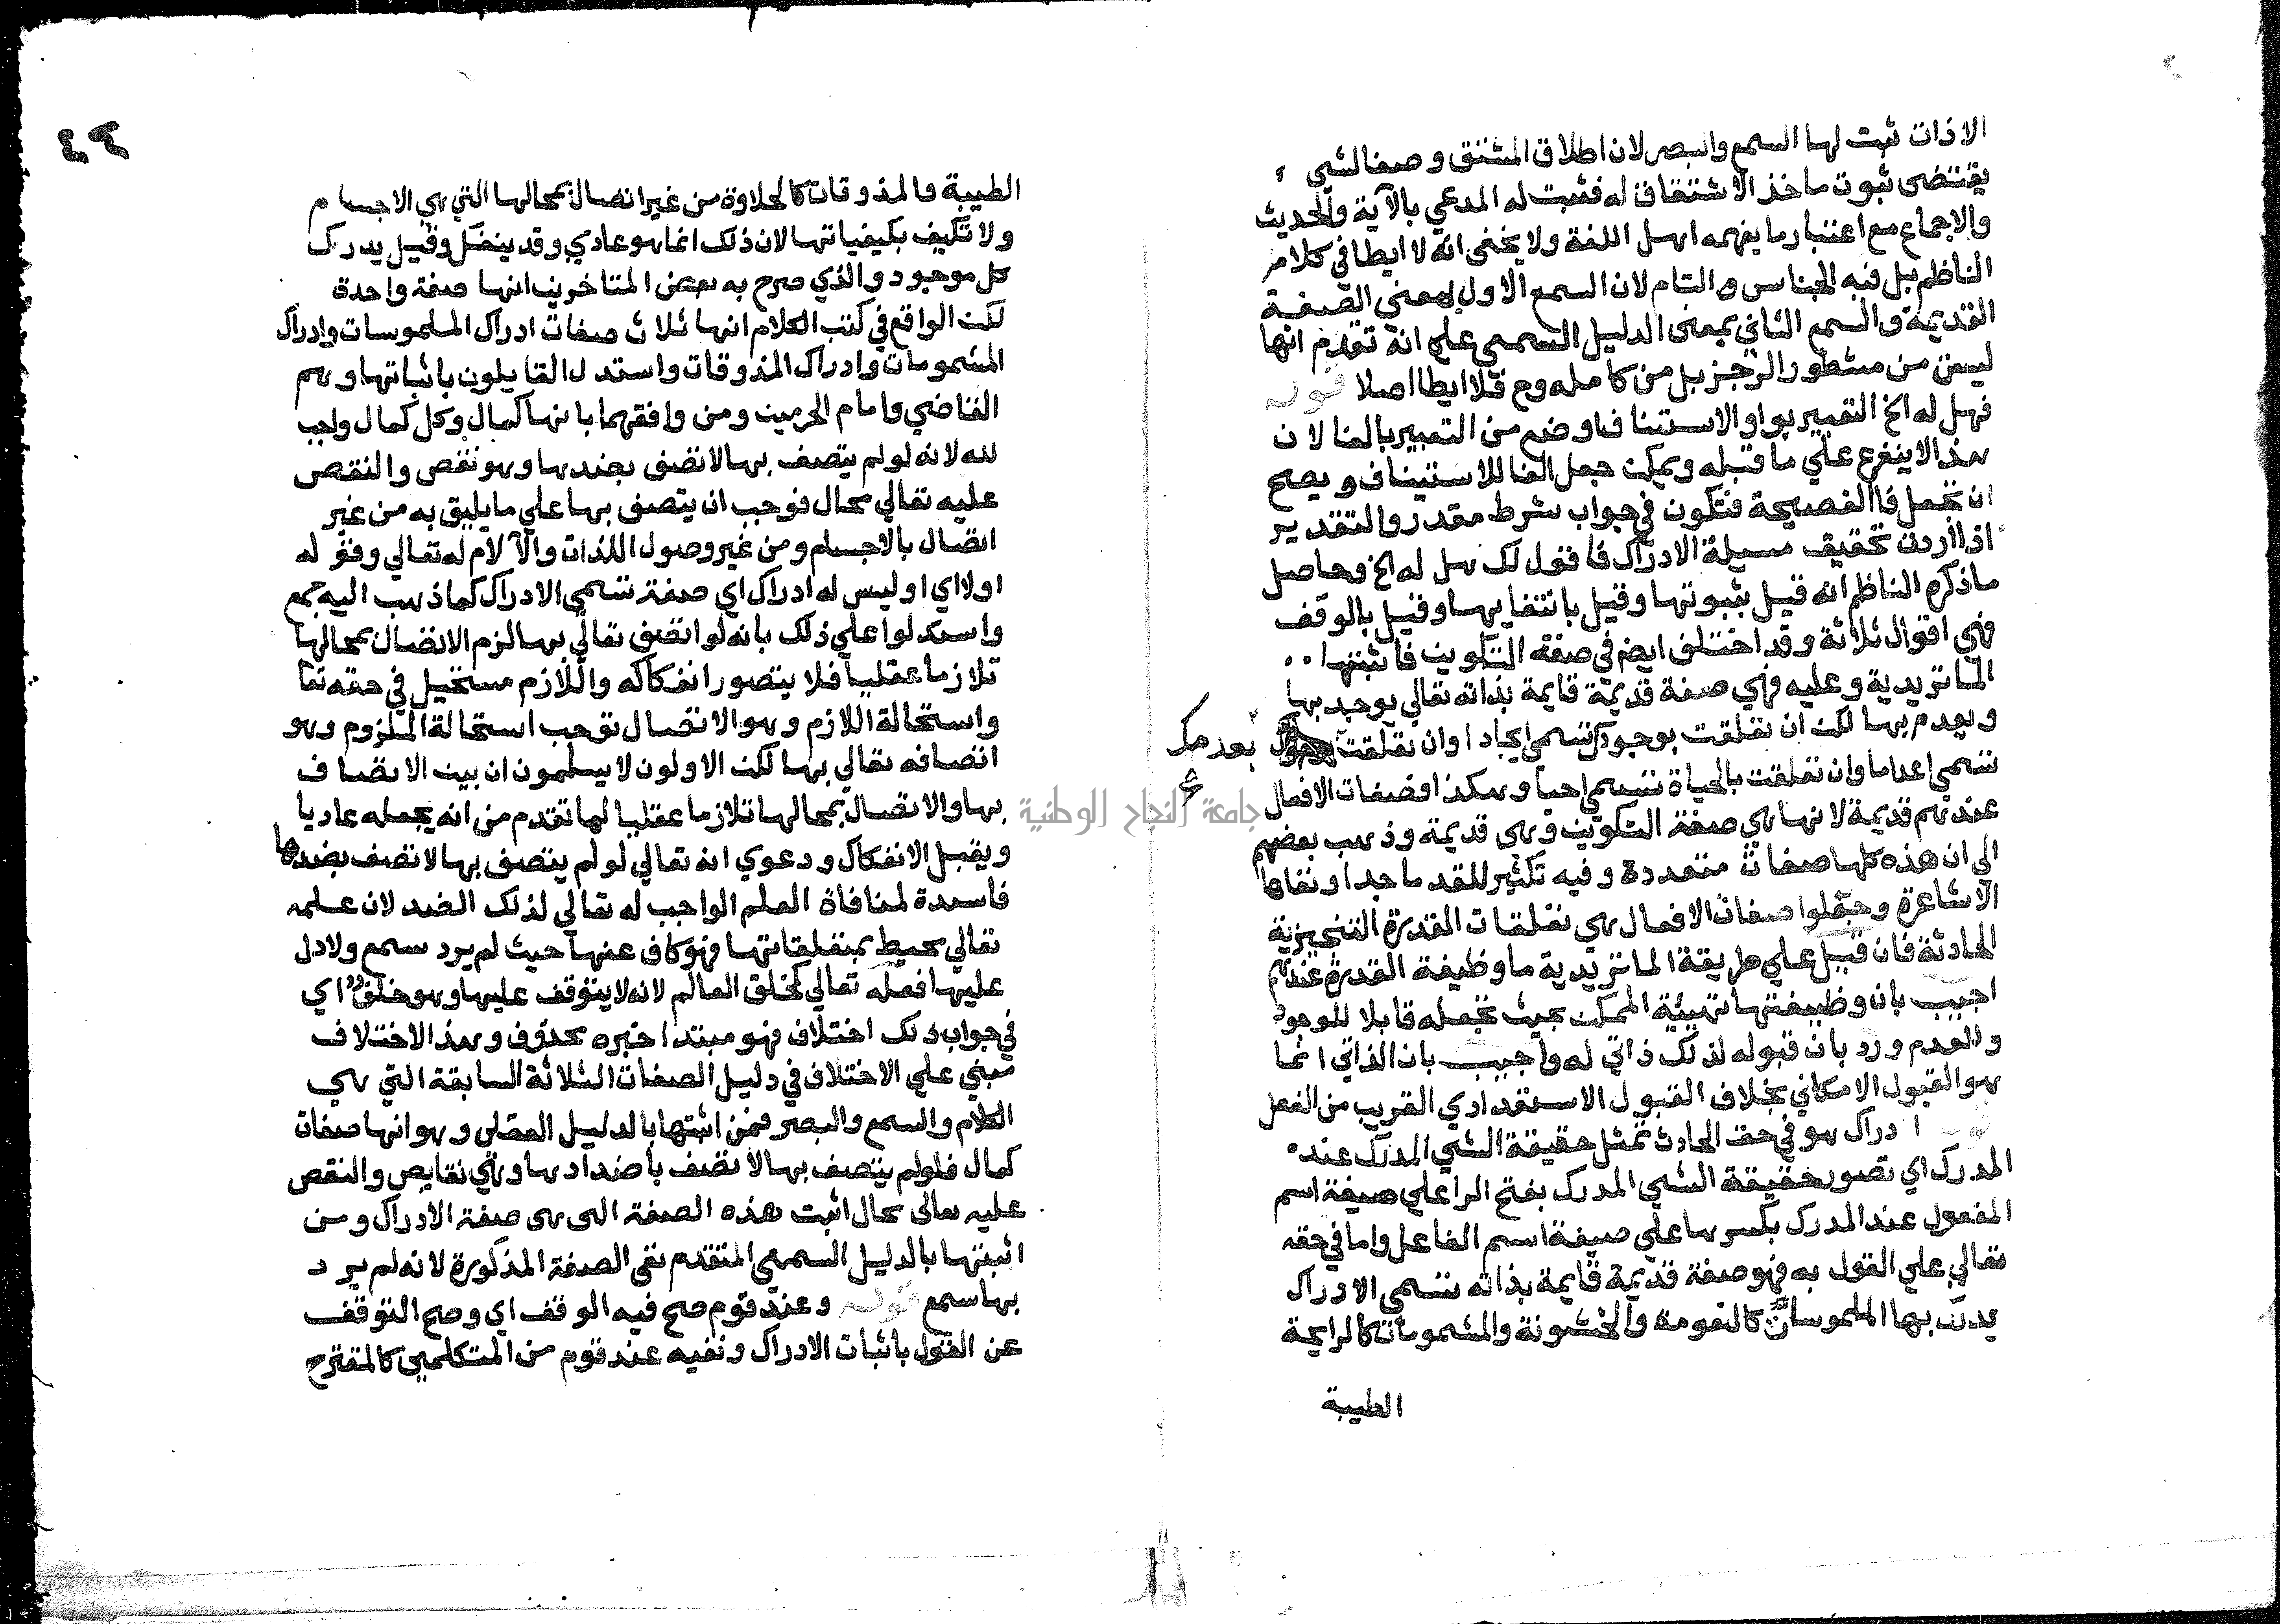 الا ذات ثبت لها السمع والبصر لان اطلاق المشتق وصفا لشي
يقتضى ثبوت ماخذ الاشتقاق له فثبت له المدعي بالآية والحديث
والاجماع مع اعتبار ما يفهمه اهل اللغة ولا يخفى انه لا ايطا في كلام
الناظم بل فيه الجناس والتام لان السمع الاول بمعنى الصفة
القديمة والسمع الثاني بمعنى الدليل السمعي علي انه تقدم انها
ليست من مشطور الرجز بل من كامله وح فلا ايطا اصلا قوله
فهل له الخ التعبير بواو الاستئنا ف اوضح من التعبير بالفا لان
هذا لا يتفرع علي ما قبله ويمكن جعل الفا للاستيناف ويصح
ان تجعل فا الفصيحة فتكون في جواب شرط مقدر والتقدير
اذا اردت تحقيق مسيلة الادراك فاقول لك هل له الخ وحاصل
ما ذكره الناظم انه قيل بثبوتها وقيل بانتفايها وقيل بالوقف
فهي اقوال ثلاثة وقد اختلف ايضم في صفة التكوين فاثبتها
الماتريدية وعليه فهي صفة قديمة قايمة بذاته تعالي يوجد بها
ويعدم بها لكن ان تعلقت بوجودك تسمي ايجادا وان تعلقت بعدمك
تسمي اعداما وان تعلقت بالحياة تسمي احيا وهكذا فصفات الافعال
عندهم قديمة لانها هي صفة التكوين وهي قديمة وذهب بعضهم
الي ان هذه كلها صفات متعددة وفيه تكثير للقدما جدا ونفاها
الاشاعرة وجعلوا صفات الافعال هي تعلقات القدرة التنجيزية
الحادثة فان قيل علي طريقة الماتريدية ما وظيفة القدرة عندهم
اجيب بان وظيفتها تهيئة الممكن بحيث تجعله قابلا للوجود
والعدم ورد بان قبوله لذلك ذاتي له واجيب بان الذاتي انما
هو القبول الامكاني بخلاف القبول الاستعدادي القريب من الفعل
ادراك هو في حق الحادث تمثل حقيقة الشي المدرك عند
المدرك اي تصور حقيقة الشي المدرك بفتح الرا علي صيغة اسم
المفعول عند المدرك بكسرها علي صيغة اسم الفاعل واما في حقه
تعالي علي القول به فهو صفة قديمة قايمة بذاته تسمي الادراك
يدرك بها الملموسات كالنعومة والخشونة والمشمومات كالرايحة
الطيبة
الطيبة والمذوقات كالحلاوة من غير اتصال بمحالها التي هي الاجسام
ولا تكيف بكيفياتها لان ذلك انما هو عادي وقد ينفك وقيل يدرك
كل موجود والذي صرح به بعض المتاخرين انها صفة واحدة
لكن الواقع في كتب الكلام انها ثلاث صفات ادراك الملموسات وادراك
المشمومات وادراك المذوقات واستدل القايلون باثباتها وهم
القاضي وامام الحرمين ومن وافقهما بانها كمال وكل كمال واجب
لله لانه لو لم يتصف بها لاتصف بضدها وهو نقص والنقص
عليه تعالي محال فوجب ان يتصف بها علي ما يليق به من غير
اتصال بالاجسام ومن غير وصول اللذات والآلام له تعالي وقوله
اولا اي اوليس له ادراك اي صفة تسمي الادراك كما ذهب اليه جمع
واستدلوا علي ذلك بانه لو اتصف تعالي بها لزم الاتصال بمحالها
تلازما عقليا فلا يتصور انفكاكه واللازم مستحيل في حقه تعا
واستحالة اللازم وهو الاتصال توجب استحالة الملزوم وهو
اتصافه تعالي بها لكن الاولون لا يسلمون ان بين الاتصاف
بها والاتصال بمحالها تلازما عقليا لما تقدم من انه يجعله عاديا
ويقبل الانفكاك ودعوي انه تعالي لو لم يتصف بها لاتصف بضدها
فاسدة لمنافاة العلم الواجب له تعالي لذلك الضد لان علمه
تعالي محيط بمتعلقاتها فهو كاف عنها حيث لم يرد سمع ولا دل
عليها فعله تعالي كخلق العالم لانه لا يتوقف عليها وهو خلق اي
في جواب ذلك اختلاف فهو مبتدا خبره محذوف وهذا الاختلاف
مبني علي الاختلاف في دليل الصفات الثلاثة السابقة التي هي
الكلام والسمع والبصر فمن اثبتها بالدليل العقلي وهو انها صفات
كمال فلو لم يتصف بها لاتصف باضدادها وهي نقايص والنقص
عليه تعالى محال اثبت هذه الصفة التي هي صفة الادراك ومن
اثبتها بالدليل السمعي المتقدم نفى الصفة المذكورة لانه لم يرد
بها سمع قوله وعند قوم صح فيه الوقف اي وصح التوقف
عن القول باثبات الادراك ونفيه عند قوم من المتكلمين كالمقترح
جامعة النجاح الوطنية